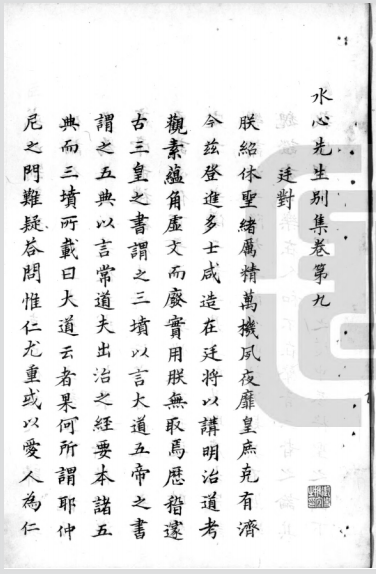 水心先生別集卷第九
廷對
朕紹休聖緒厲精萬機夙夜靡皇庶克有濟
今茲登進多士咸造在廷將以講明治道考
觀素蘊角虛文而廢實用朕無取焉歷稽邃
古三皇之書謂之三墳以言大道五帝之書
謂之五典以言常道夫出治之經要本諸五
典而三墳所載曰大道云者果何所謂耶仲
尼之門難疑荅問惟仁尤重或以愛人為仁